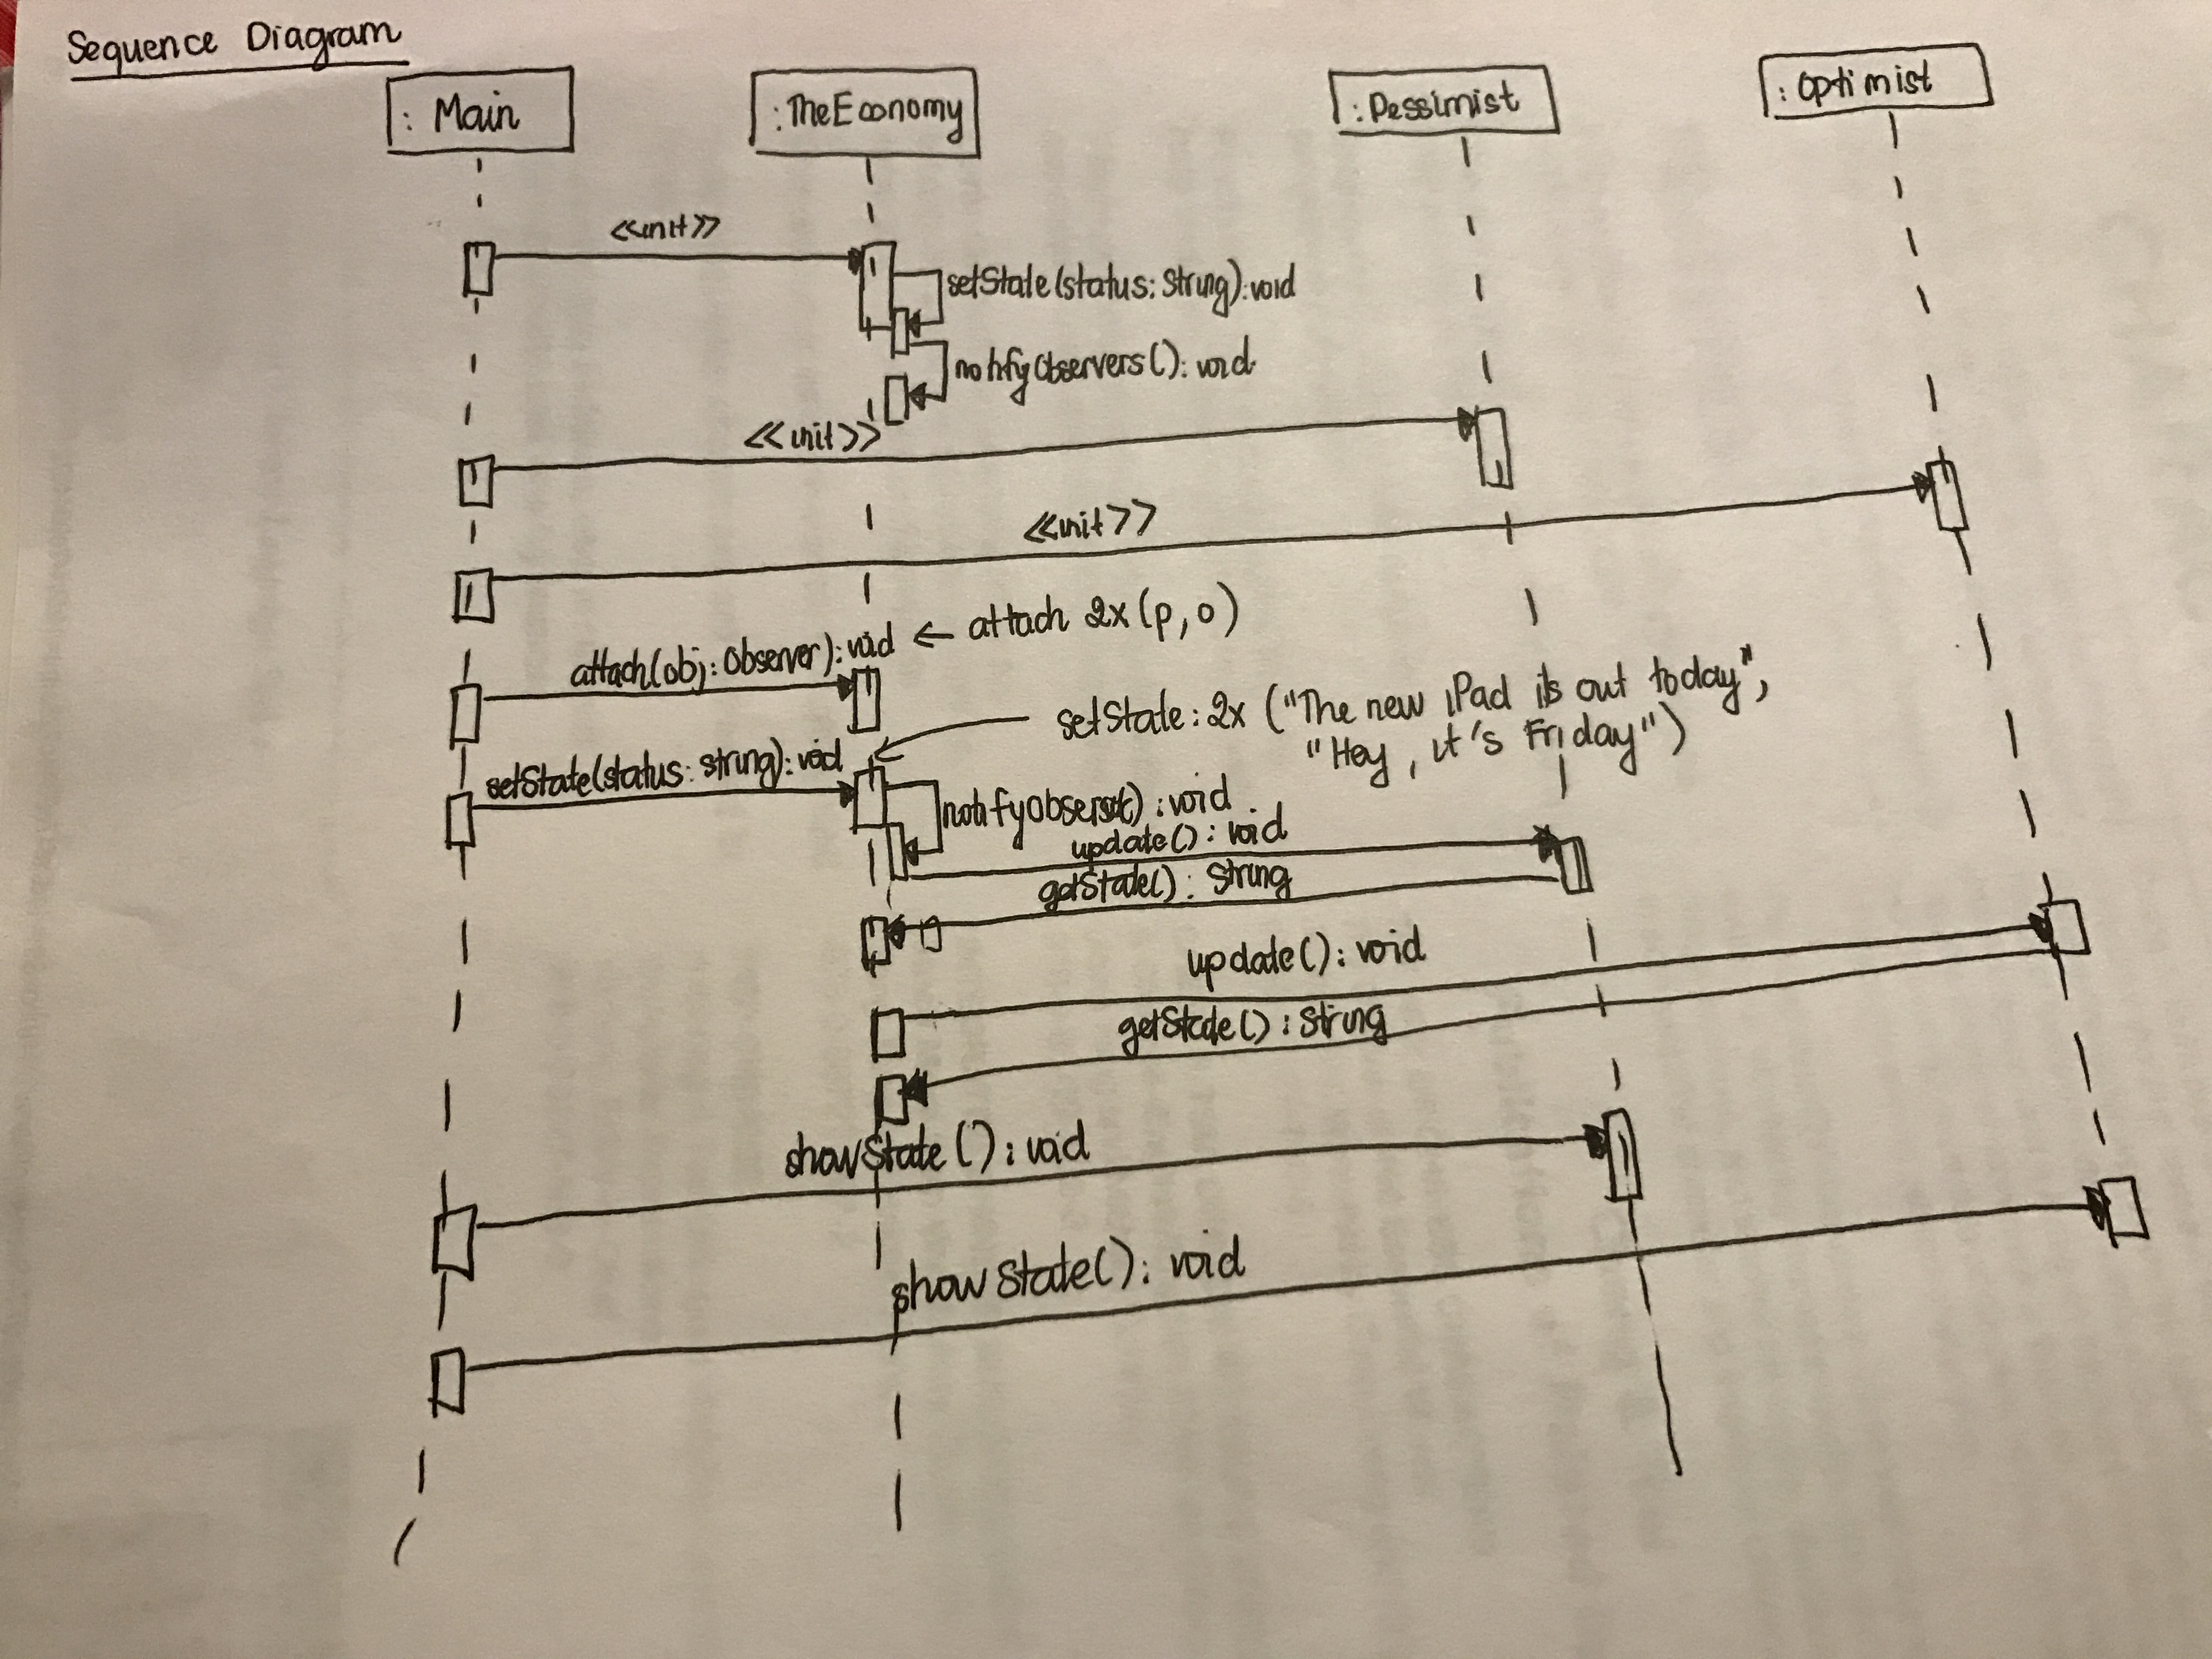 Sequence Diagram
: Main
:TheEconomy
:Pessimist
:Optimist
<<init>>
setState(status:String):void
notifyObservers():void
<<init>>
<<init>>
attach(obj:Observer):void ← attach 2x (p,o)
setState:2x ("The new iPad its out today",
"Hey, it's Friday")
setState(status:string):void
void
update():void
getState():String
update():void
getState():String
showState():void
showState():void